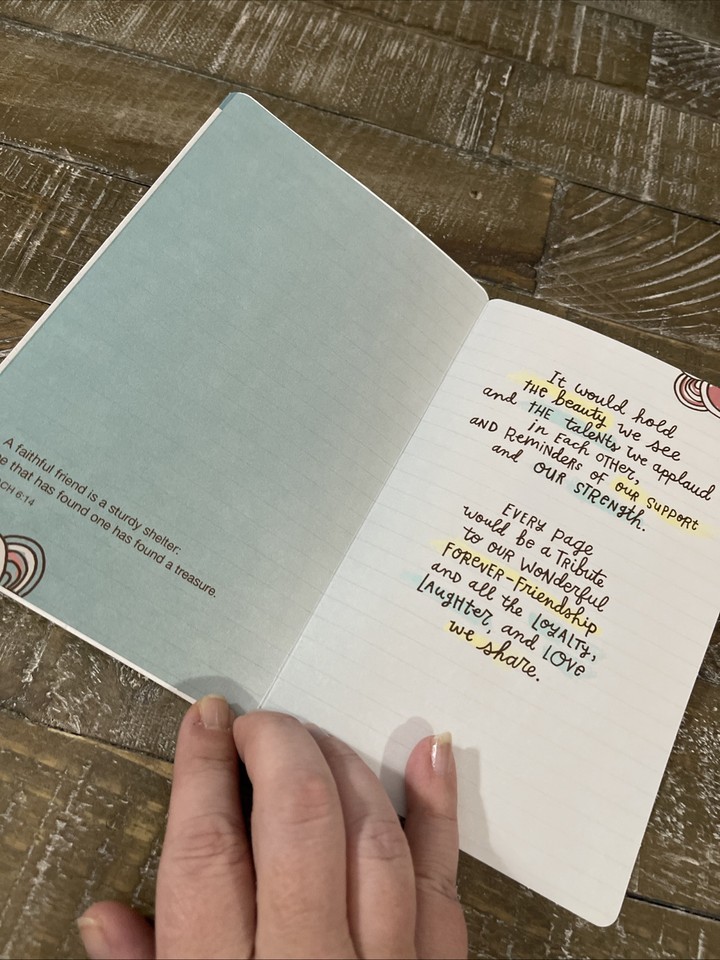 A faithful friend is a sturdy shelter:
that has found one has found a treasure.
6:14
It would hold
THE beauty we see
and THE taleNts we applaud
in Each oTHer,
aND ReMiNDeRs of our support
and our STReNgth.
EVERY page
would be a TRibute
to ouR WoNderful
FOREVER-Friendship
and all the LoyALTy,
LAugHTer, and LOVe
we share.